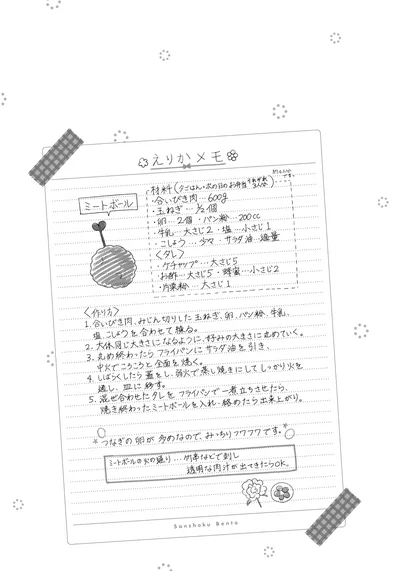 えりかメモ
ミートボール
材料(夕ごはん・次の日のお弁当
・合いびき肉…600g
・玉ねぎ…1/2個
・卵…2個 ・パン粉…200cc
・牛乳…大さじ2 ・塩…小さじ1
・こしょう…少々 ・サラダ油…適量
<タレ>
・ケチャップ…大さじ5
・お酢…大さじ5 ・蜂蜜…小さじ2
・片栗粉…大さじ1
<作り方>
1. 合いびき肉、みじん切りした玉ねぎ、卵、パン粉、牛乳、
塩、こしょうを合わせて捏る。
2. 大体同じ大きさになるように、好みの大きさに丸めていく。
3. 丸め終わったらフライパンにサラダ油を引き、
中火でころころと全面を焼く。
4. しばらくしたら蓋をし、弱火で蒸し焼きにしてしっかり火を
通し、皿に移す。
5. 混ぜ合わせたタレをフライパンで一煮立ちさせたら、
焼き終わったミートボールを入れ、絡めたら出来上がり。
*つなぎの卵が多めなので、みっちりフワフワです。*
ミートボールの火の通り…竹串などで刺し
透明な肉汁が出てきたらOK。
Sanshoku Bento